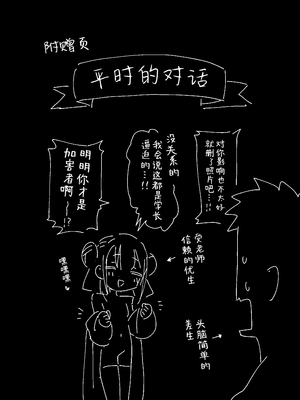 附赠页
平时的对话
对你影响也不太好
就删了照片吧…!!
没关系的
我会说这都是学长
逼迫的…!!
明明你才是
加害者啊～!?
受老师
信赖的优生
嘿嘿嘿
头脑简单的
差生